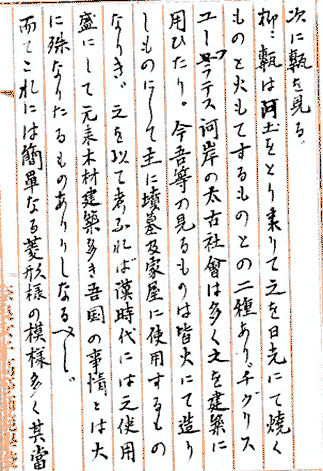 次に甎を見る、
抑〻甎は阿土をとり来りて之を日光にて焼く
ものと火もてするものとの二種あり、チグリス
ユーフラテス河岸の太古社會は多く之を建築に
用ひたり。今吾等の見るものは皆火にて造り
しものにして主に墳墓及家屋に使用するもの
なりき、之を以て考ふれば漢時代には之使用
盛にして元来木材建築多き吾国の事情とは大
に殊なりたるものありしなるべし。
而てこれには簡単なる菱形様の模様多く其當